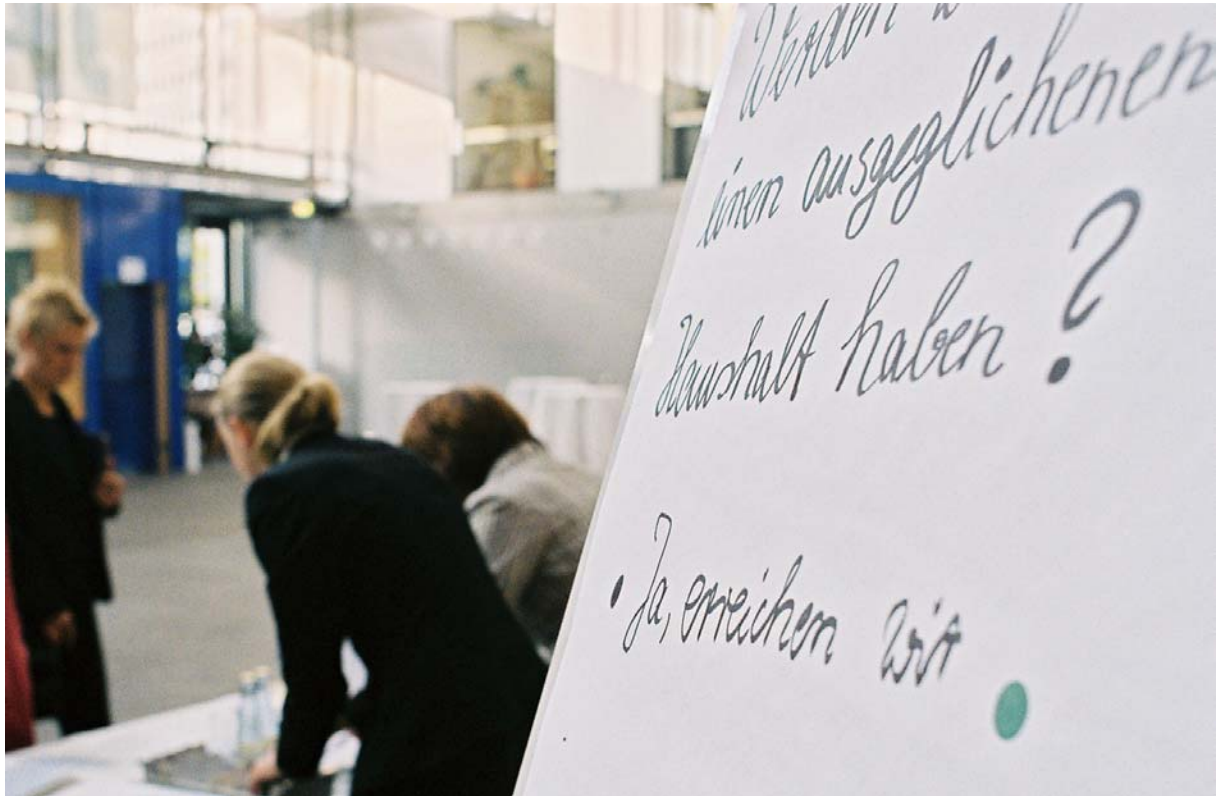 Werden
einen ausgeglichenen
Haushalt haben?
• Ja, erreichen wir